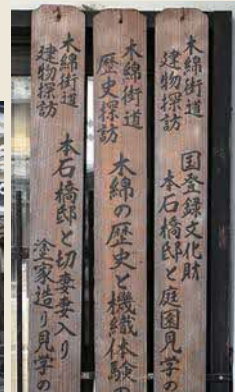 木綿街道
建物探訪
国登録文化財
本石橋邸と庭園見学の
木綿街道
歴史探訪
木綿の歴史と機織体験の
木綿街道
建物探訪
本石橋邸と切妻妻入り
塗家造り見学の